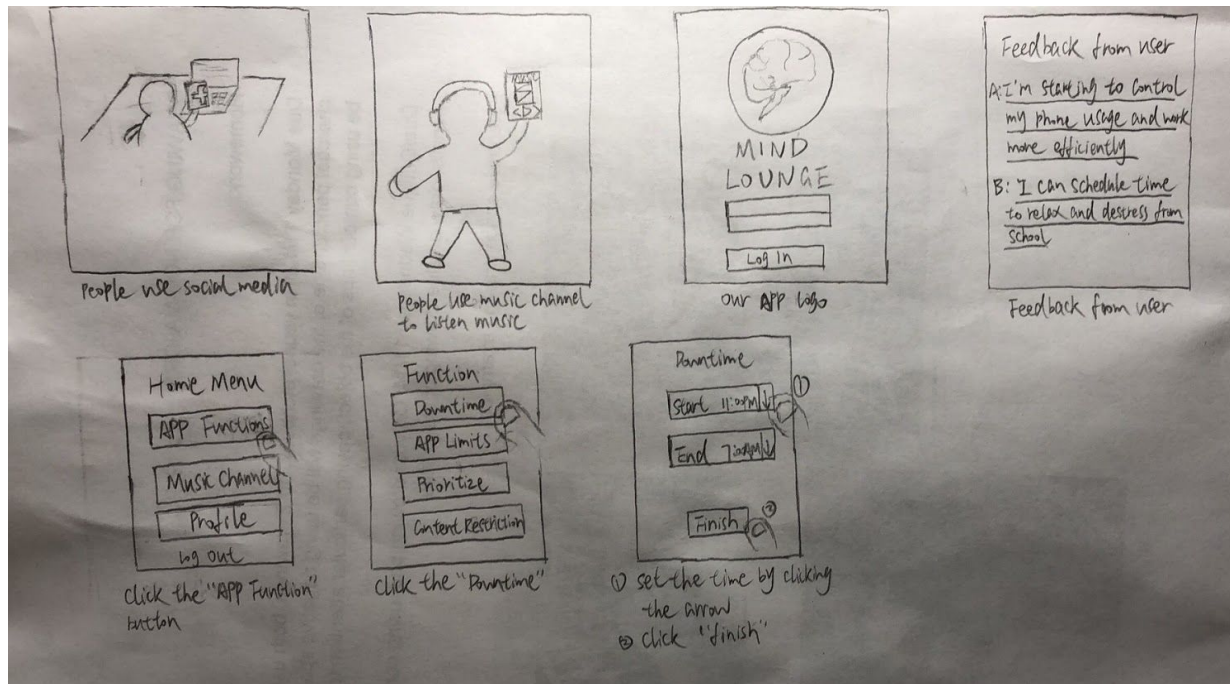 People use social media
MUSIC
People use music channel
to listen music
MIND
LOUNGE
Log In
our APP logo
Feedback from user
A: I'm starting to control
my phone usage and work
more efficiently
B: I can schedule time
to relax and destress from
school
Feedback from user
Home Menu
APP Functions
Music Channel
Profile
Log Out
click the "APP Function"
button
Function
Downtime
APP Limits
Prioritize
Content Restriction
click the "Downtime"
Downtime
Start 11:00PM ↓
①
End 7:00AM ↓
Finish
②
① set the time by clicking
the arrow
② click "finish"